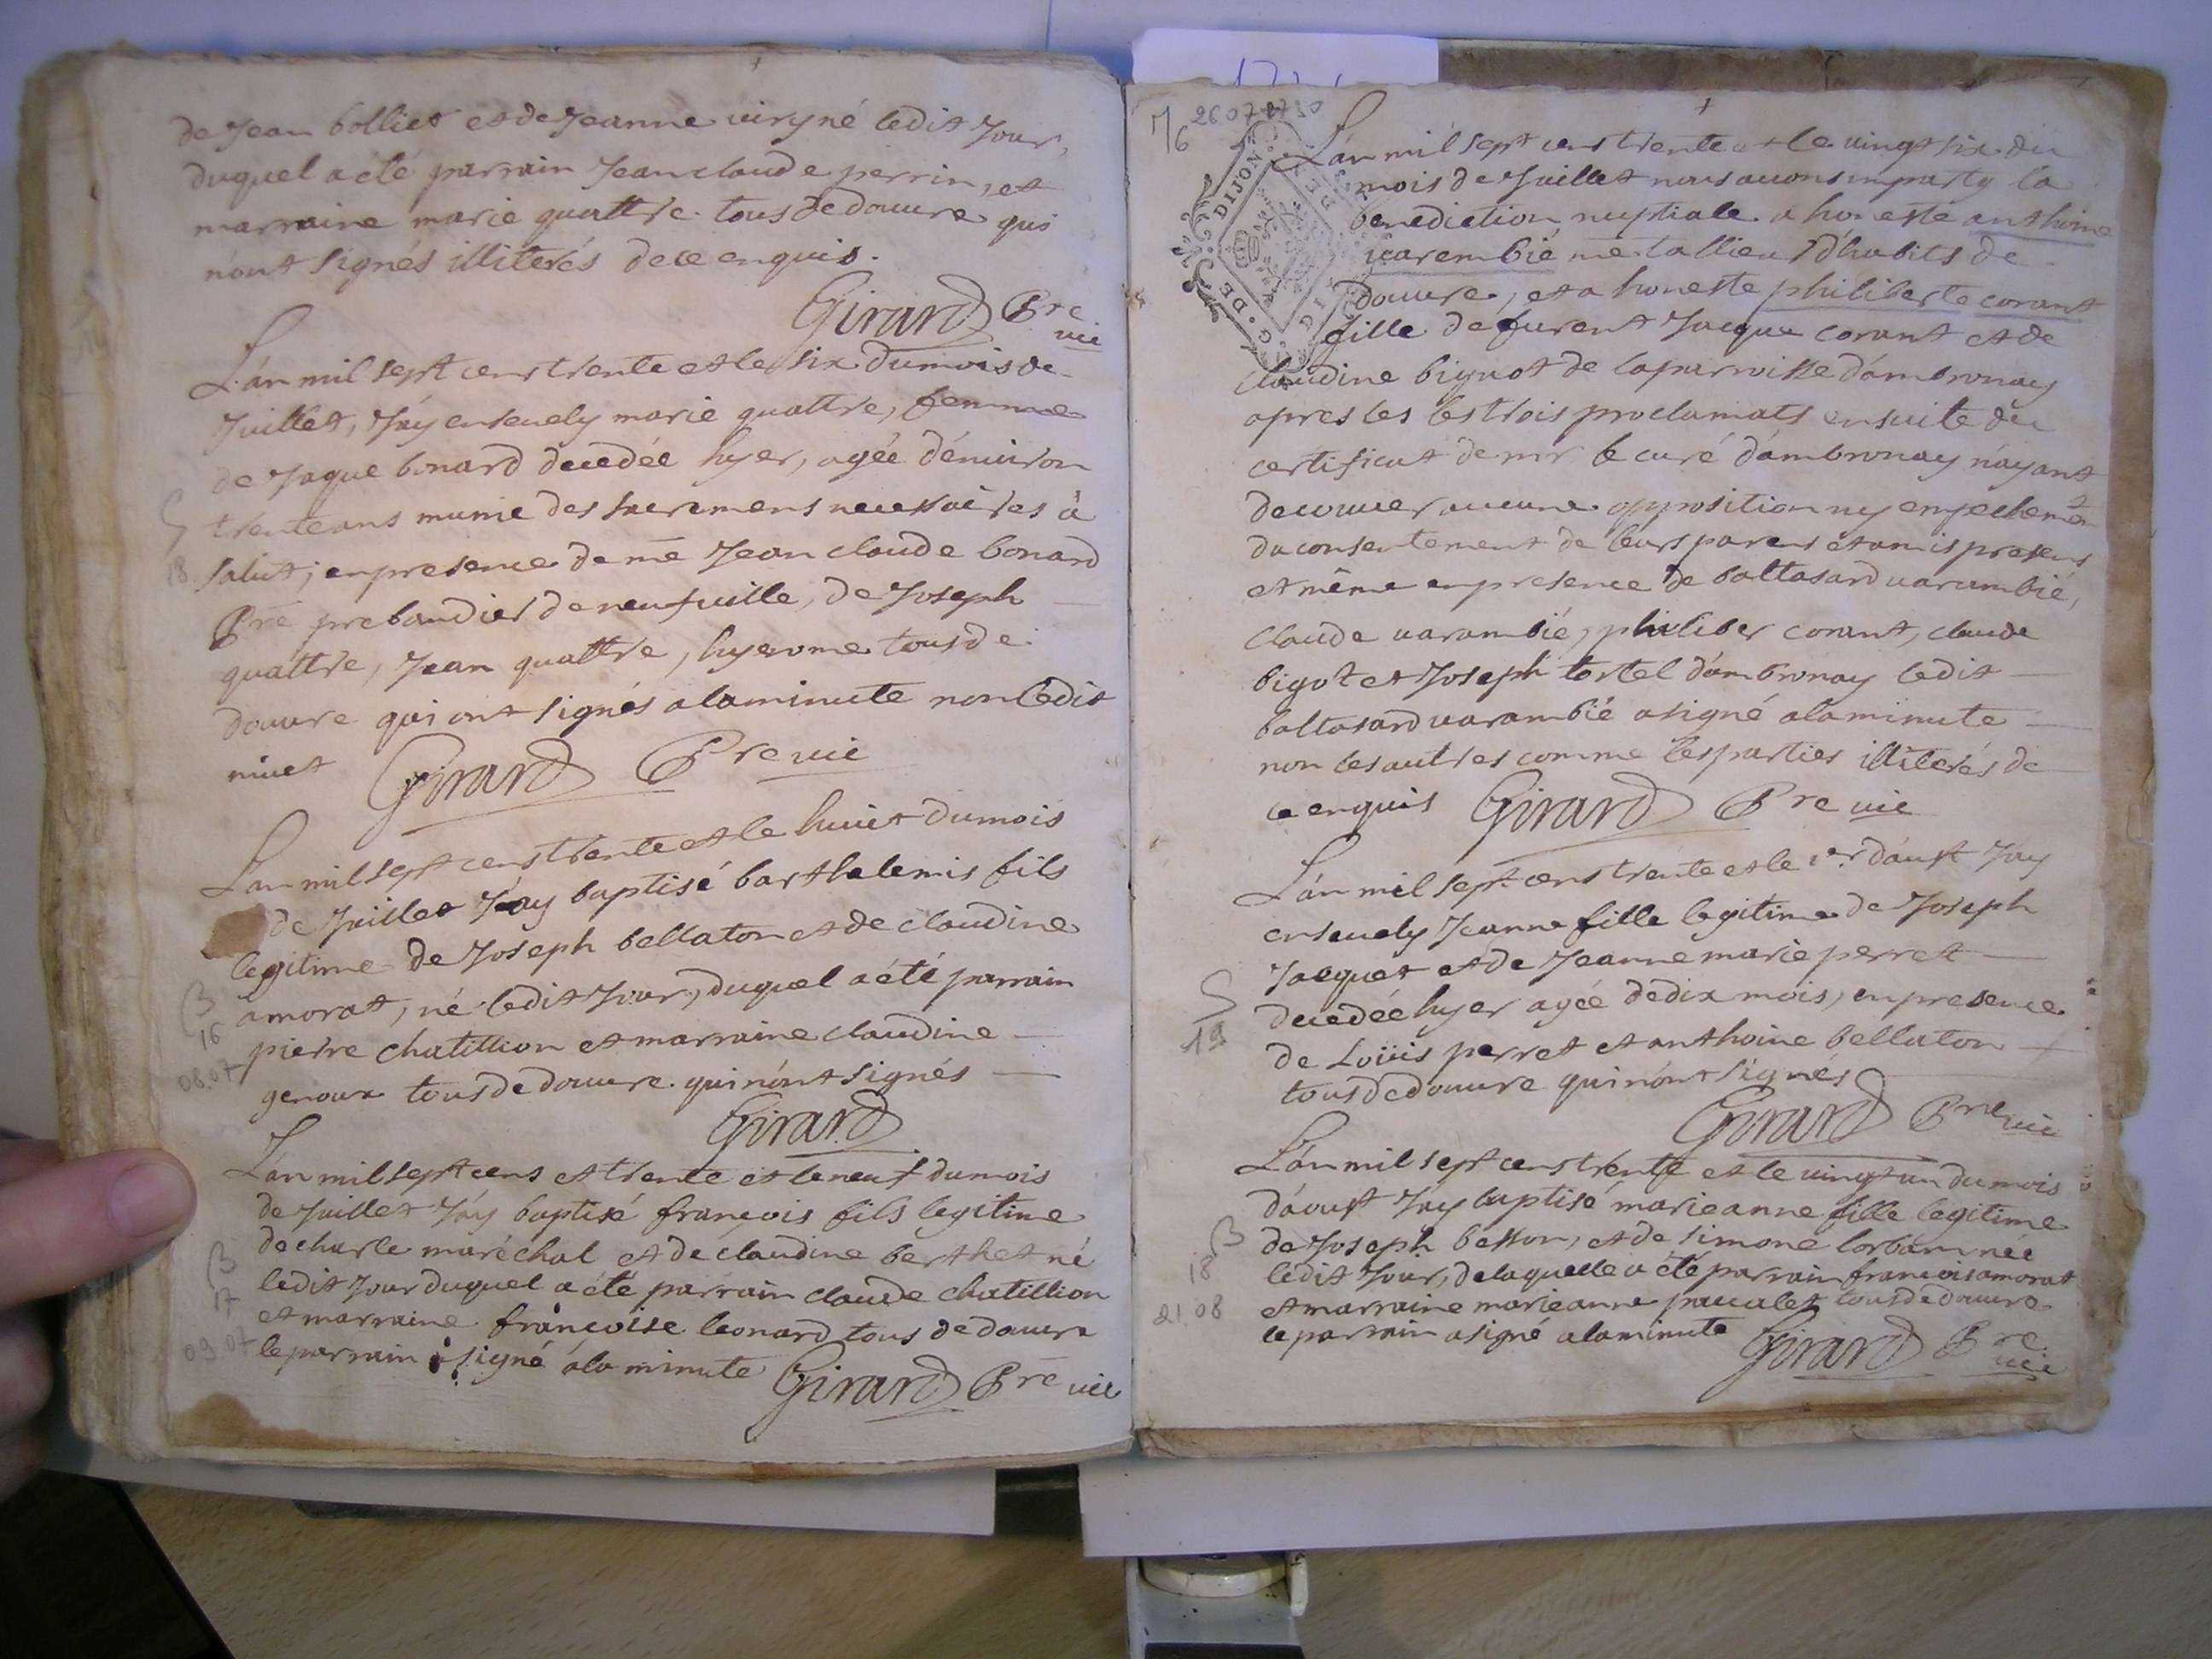 de Jean bolliet et de Jeanne viry né ledit Jour,
duquel a été parrain Jean claude perrin, et
marraine marie quattre tous de douure qui
n'ont signés illiterés de ce enquis.
Girard Pre
vic
L'an mil sept cens trente et le six du mois de
Juillet, J'ay enseuely marie quattre, femme
de Jaque bonard decedée hyer, agée d'enuiron
trente ans munie des sacremens necessaires à
salut; en presence de me Jean claude bonard
Pre prebandier de neufuille, de Joseph
quattre, Jean quattre, hyerome tous de
douure qui ont signés a la minute non ledit
niuet Girard Pre vic
18
L'an mil sept cens trente et le huict du mois
de Juillet J'ay baptisé barthelemis fils
legitime de Joseph bellaton et de claudine
amorat, né ledit Jour, duquel a été parrain
pierre chatillion et marraine claudine
genoux tous de douure qui n'ont signés
Girard
B
16
08.07
L'an mil sept cens et trente et le neuf du mois
de Juillet J'ay baptisé françois fils legitime
de charle maréchal et de claudine berthet né
ledit Jour duquel a été parrain claude chatillion
et marraine françoise leonard tous de douure
le parrain a signé a la minute Girard Pre vic
B
17
09.07
M6 26 07 1730
G. DE DIJON
L'an mil sept cens trente et le vingt six du
mois de Juillet nous auons imparty la
benediction nuptiale a honeste anthoine
varembié me tallieur d'habits de
douure, et a honeste philiberte corant
fille de furent Jacque corant et de
claudine biguot de la parroisse d'ambronay
apres les les trois proclamats ensuite du
certificat de mr le curé d'ambronay n'ayant
decouuer aucune opposition ny empechemen
du consentement de leurs parens et amis presens
et même en presence de baltasard varambié,
claude varambié, philiber corant, claude
bigot et Joseph tortel d'ambronay ledit
baltasard varambié a signé a la minute
non les autres comme les parties illiterés de
ce enquis Girard Pre vic
L'an mil sept cens trente et le 1er d'aust J'ay
enseuely Jeanne fille legitime de Joseph
Jacquet et de Jeanne marie perret
decedée hyer agée de dix mois, en presence
de Loüis perret et anthoine bellaton
tous de douure qui n'ont signés
Girard Pre vic
S
19
L'an mil sept cens trente et le vingt un du mois
d'aoust J'ay baptisé marieanne fille legitime
de Joseph besson, et de simone lorbam née
ledit Jour, de laquelle a été parrain françois amorat
et marraine marieanne paucalet tous de douure
le parrain a signé a la minute Girard Pre
vic
B
18
21.08